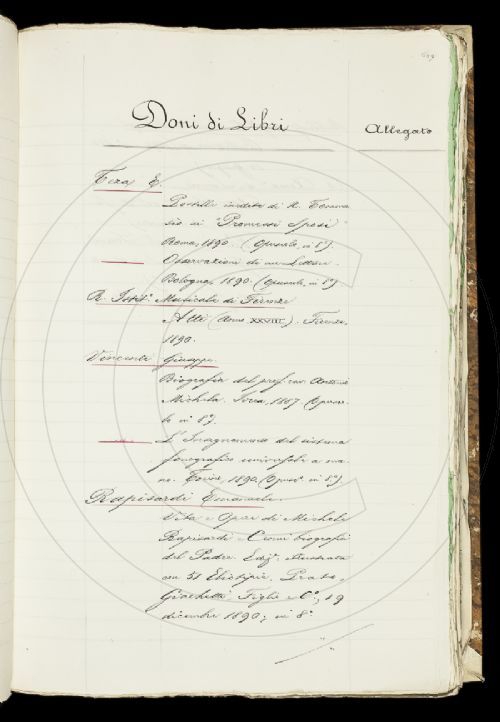 Doni di Libri
Allegato
Teza E.
Postille inedite di N. Tommaseo ai "Promessi Sposi"
Roma, 1890. (Opuscolo, in 8º).
Osservazioni di un Lettore.
Bologna, 1890. (Opuscolo, in 8º)
R. Istit.º Musicale di Firenze
Atti (Anno XXVIII). Firenze,
1890.
Vincenti Giuseppe.
Biografia del prof. cav. Antonio
Michela. Ivrea, 1887 (Opusco-
lo in 8º).
L'Insegnamento del sistema
fonografico universale a ma-
no. Torino, 1890. (Opusº in 8º).
Rapisardi Emanuele.
Vita e Opere di Michele
Rapisardi e Cenni biografici
del Padre. Edizº illustrata
con 51 Eliotipie. Prato,
Giachetti, Figlio e Cº; 19
dicembre 1890; in 8º